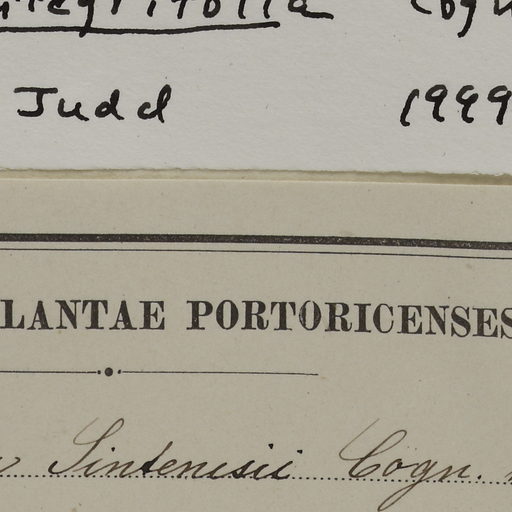 integrifolia Cogn
Judd 1999
LANTAE PORTORICENSES
Sintenisii Cogn.